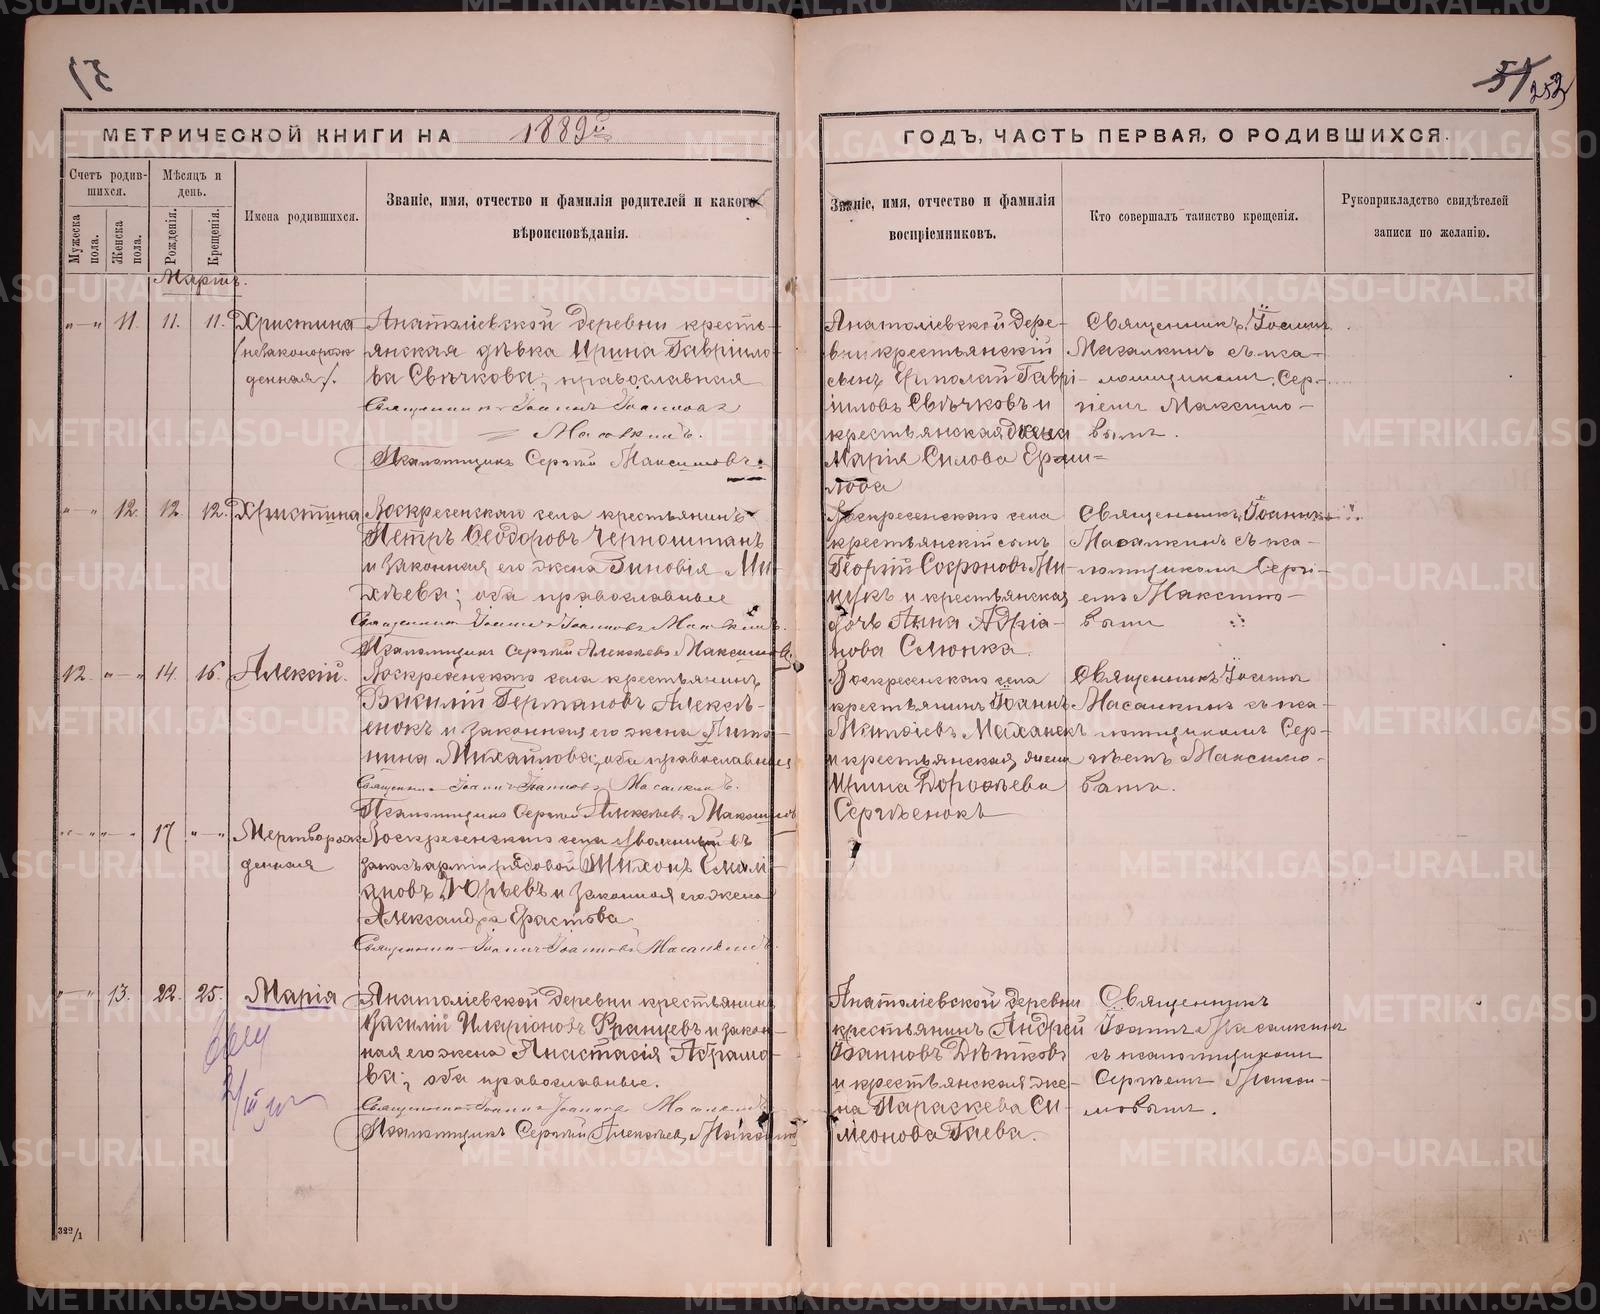 51
51
252
МЕТРИЧЕСКОЙ КНИГИ НА 1889й
ГОДЪ, ЧАСТЬ ПЕРВАЯ, О РОДИВШИХСЯ.
Счетъ родив-
шихся.
Мужеска
пола.
Женска
пола.
Мѣсяцъ и
день.
Рожденія.
Крещенія.
Имена родившихся.
Званіе, имя, отчество и фамилія родителей и какого
вѣроисповѣданія.
Званіе, имя, отчество и фамилія
воспріемниковъ.
Кто совершалъ таинство крещенія.
Рукоприкладство свидѣтелей
записи по желанію.
Мартъ.
„—„ 11. 11. 11.
Христина
/незаконорож
денная/.
Анатоліевской деревни кресть-
янская дѣвка Ирина Гавріило-
ва Свѣчкова; православная
Священникъ Іоаннъ Іоанновъ
Масалкинъ.
Псаломщикъ Сергѣй Максимовъ.
Анатоліевской дере-
вни крестьянскій
сынъ Ермолай Гаврі-
иловъ Свѣчковъ и
крестьянская жена
Марія Силова Ерми-
лова
Священникъ Іоаннъ
Масалкинъ съ пса-
ломщикомъ Сер-
гіемъ Максимо-
вымъ.
„—„ 12. 12. 12.
Христина
Воскресенскаго села крестьянинъ
Петръ Ѳеодоровъ Черноштанъ
и законная его жена Зиновія Ми-
хѣева; оба православные
Священникъ Іоаннъ Іоанновъ Масалкинъ.
Псаломщикъ Сергѣй Алексѣевъ Максимовъ.
Воскресенскаго села
крестьянскій сынъ
Георгій Софроновъ
и крестьянская
дочь Анна Адріа-
нова Семонка.
Священникъ Іоаннъ
Масалкинъ съ пса-
ломщикомъ Сергі-
емъ Максимо-
вымъ
12. „—„ 14. 16.
Алексій.
Воскресенскаго села крестьянинъ
Василій Германовъ Алексѣ-
енокъ и законная его жена Анто-
нина Михайлова; оба православныя
Священникъ Іоаннъ Іоанновъ Масалкинъ.
Псаломщикъ Сергѣй Алексѣевъ Максимовъ
Воскресенскаго села
крестьянинъ Іоаннъ
Матѳіевъ Маханекъ
и крестьянская жена
Ирина Дороѳеева
Сергѣенокъ
Священникъ Іоаннъ
Масалкинъ съ пса-
ломщикомъ Сер-
гѣемъ Максимо-
вымъ.
„—„ „—„ 17 „—„
Мертворож
денная
Воскресенскаго села уволенный въ
запасъ арміи рядовой Тихонъ
Юрьевъ и законная его жена
Александра Ерастова
Священникъ Іоаннъ Іоанновъ Масалкинъ.
„—„ 13. 22. 25.
Марія
Анатоліевской деревни крестьянинъ
Василій Иларіоновъ Францевъ и закон-
ная его жена Анастасія Абрамо-
ва; оба православные.
Священникъ Іоаннъ Іоанновъ Масалкинъ
Псаломщикъ Сергѣй Алексѣевъ Максимовъ
Анатоліевской деревни
крестьянинъ Андрей
Іоанновъ Дѣтковъ
и крестьянская же-
на Параскева Си-
меонова Гаева.
Священникъ
Іоаннъ Масалкинъ
съ псаломщикомъ
Сергѣемъ Макси-
мовымъ.
322/1
METRIKI.GASO-URAL.RU